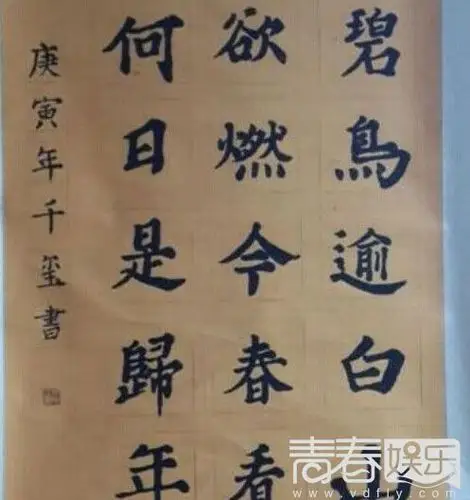 碧鳥逾白
欲燃今春看
何日是歸年
庚寅年千玺書
青春娱乐
www.vdfly.com